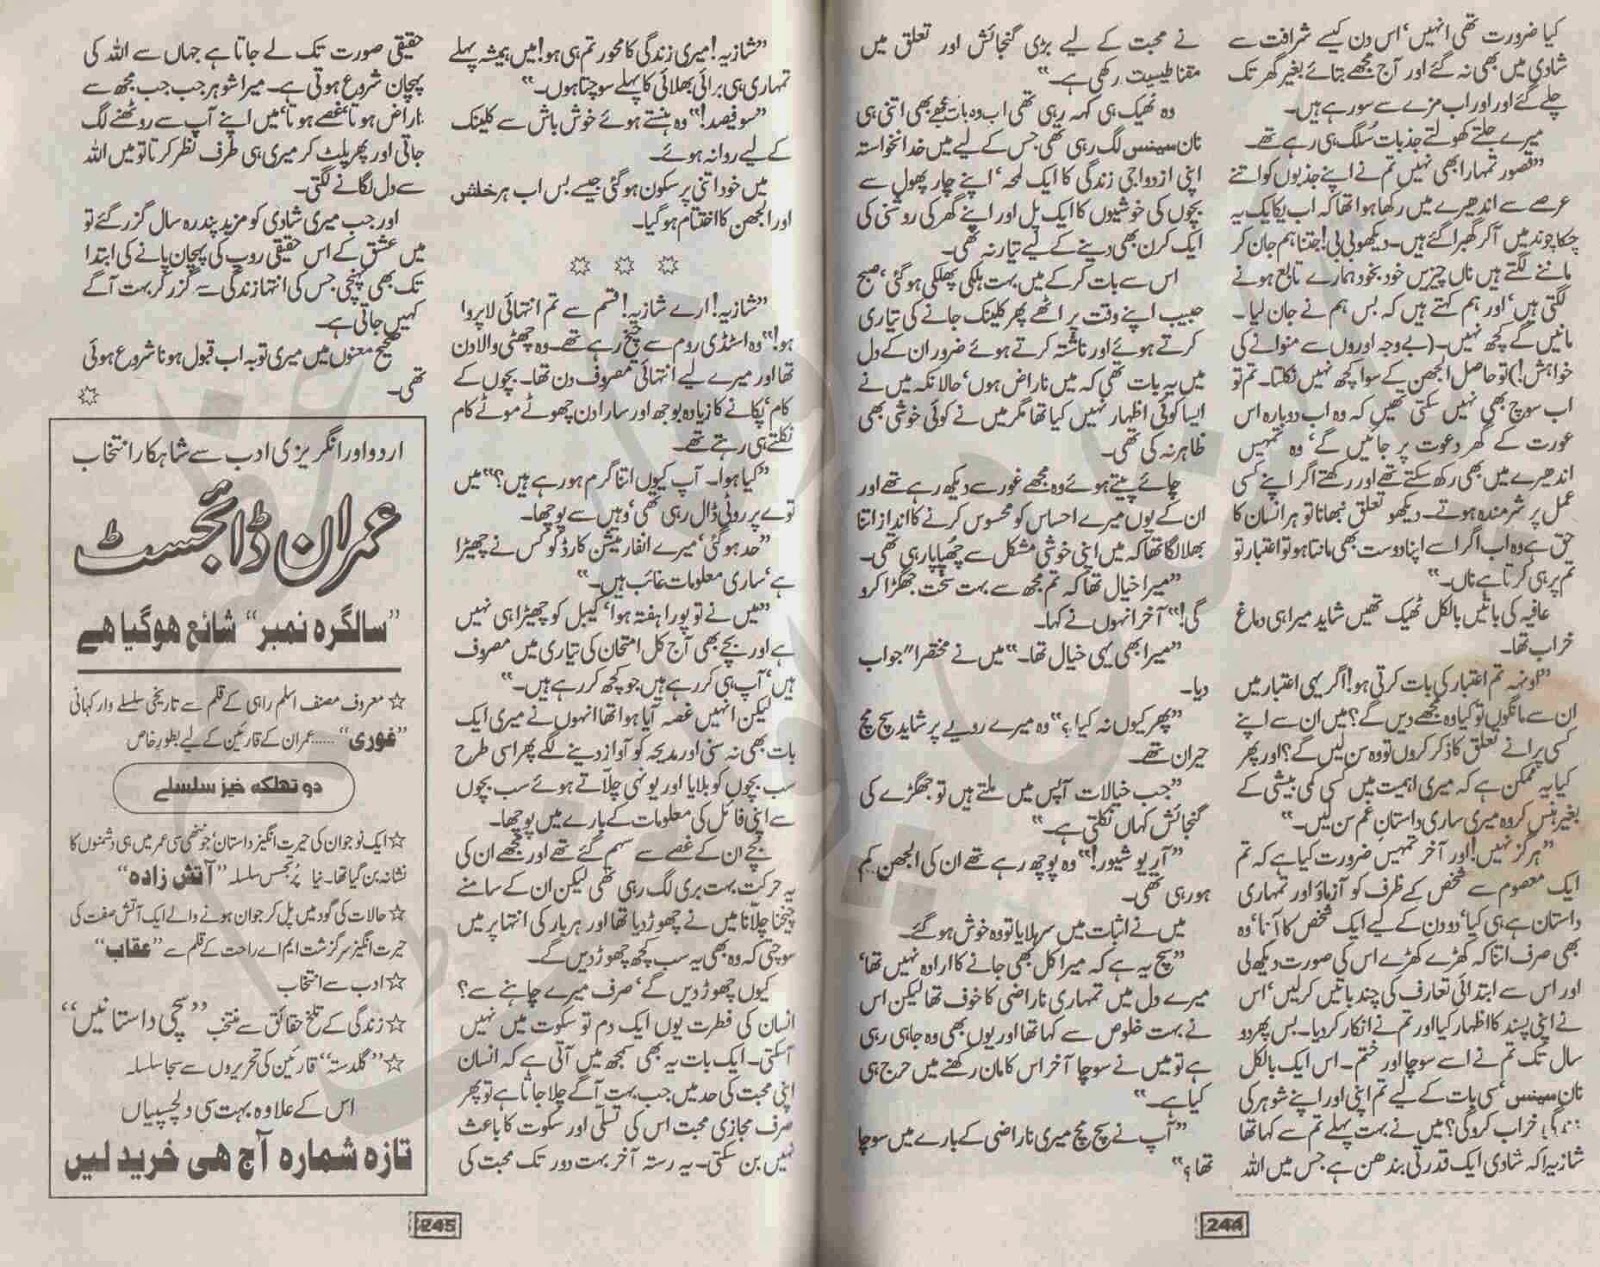 کیا ضرورت تھی انہیں‘ اس دن کیسے شرافت سے
شادی میں بھی نہ گئے اور آج مجھے بتائے بغیر گھر تک
چلے گئے اور اور اب مزے سے سو رہے ہیں۔
میرے جلتے کھولتے جذبات سُلگ ہی رہے تھے۔
”قصور تمہارا بھی نہیں تم نے اپنے جذبوں کو اتنے
عرصے سے اندھیرے میں رکھا ہوا تھا کہ اب یکایک یہ
چکا چوند میں آ کر گھبرا گئے ہیں۔ دیکھو بی بی! جتنا ہم جان کر
ماننے لگتے ہیں ناں چیزیں خود بخود ہمارے تابع ہونے
لگتی ہیں‘ اور ہم کہتے ہیں کہ بس ہم نے جان لیا۔
مانیں گے کچھ نہیں۔ (بے وجہ اوروں سے منوانے کی
خواہش!) تو حاصل الجھن کے سوا کچھ نہیں نکلتا۔ تم تو
اب سوچ بھی نہیں سکتی تھیں کہ وہ اب دوبارہ اس
عورت کے گھر دعوت پر جائیں گے‘ وہ تمہیں
اندھیرے میں بھی رکھ سکتے تھے اور رکھتے اگر اپنے کسی
عمل پر شرمندہ ہوتے۔ دیکھو تعلق نبھانا تو ہر انسان کا
حق ہے وہ اب اگر اسے اپنا دوست بھی مانتا ہو تو اعتبار تو
تم پر ہی کرتا ہے ناں۔“
عافیہ کی باتیں بالکل ٹھیک تھیں شاید میرا ہی دماغ
خراب تھا۔
”اونہہ تم اعتبار کی بات کرتی ہو! اگر یہی اعتبار میں
ان سے مانگوں تو کیا وہ مجھے دیں گے؟ میں ان سے اپنے
کسی پرانے تعلق کا ذکر کروں تو وہ سن لیں گے؟ اور پھر
کیا یہ ممکن ہے کہ میری اہمیت میں کسی کمی بیشی کے
بغیر ہنس کر وہ میری ساری داستانِ غم سن لیں۔“
”ہرگز نہیں! اور آخر تمہیں ضرورت کیا ہے کہ تم
ایک معصوم سے شخص کے ظرف کو آزماؤ اور تمہاری
داستان ہے ہی کیا‘ دو دن کے لیے ایک شخص کا آنا‘ وہ
بھی صرف اتنا کہ کھڑے کھڑے اس کی صورت دیکھ لی
اور اس سے ابتدائی تعارف کی چند باتیں کر لیں‘ اس
نے اپنی پسند کا اظہار کیا اور تم نے انکار کر دیا۔ بس پھر دو
سال تک تم نے اسے سوچا اور ختم۔ اس ایک بالکل
نان سینس سی بات کے لیے تم اپنی اور اپنے شوہر کی
خراب کرو گی؟ میں نے بہت پہلے تم سے کہا تھا
شازیہ! کہ شادی ایک قدرتی بندھن ہے جس میں اللہ
نے محبت کے لیے بڑی گنجائش اور تعلق میں
مقناطیسیت رکھی ہے۔“
وہ ٹھیک ہی کہہ رہی تھی اب وہ بات مجھے بھی اتنی ہی
نان سینس لگ رہی تھی جس کے لیے میں خدانخواستہ
اپنی ازدواجی زندگی کا ایک لمحہ‘ اپنے چار پھول سے
بچوں کی خوشیوں کا ایک پل اور اپنے گھر کی روشنی کی
ایک کرن بھی دینے کے لیے تیار نہ تھی۔
اس سے بات کر کے میں بہت ہلکی پھلکی ہو گئی‘ صبح
حبیب اپنے وقت پر اٹھے پھر کلینک جانے کی تیاری
کرتے ہوئے اور ناشتہ کرتے ہوئے ضرور ان کے دل
میں یہ بات تھی کہ میں ناراض ہوں‘ حالانکہ میں نے
ایسا کوئی اظہار نہیں کیا تھا مگر میں نے کوئی خوشی بھی
ظاہر نہ کی تھی۔
چائے پیتے ہوئے وہ مجھے غور سے دیکھ رہے تھے اور
ان کے یوں میرے احساس کو محسوس کرنے کا انداز اتنا
بھلا لگا تھا کہ میں اپنی خوشی مشکل سے چھپا پا رہی تھی۔
”میرا خیال تھا کہ تم مجھ سے بہت سخت جھگڑا کرو
گی!“ آخر انہوں نے کہا۔
”میرا بھی یہی خیال تھا۔“ میں نے مختصراً جواب
دیا۔
”پھر کیوں نہ کیا؟“ وہ میرے رویے پر شاید سچ مچ
حیران تھے۔
”جب خیالات آپس میں ملتے ہیں تو جھگڑے کی
گنجائش کہاں نکلتی ہے۔“
”آر یو شیور!“ وہ پوچھ رہے تھے ان کی الجھن کم
ہو رہی تھی۔
میں نے اثبات میں سر ہلایا تو وہ خوش ہو گئے۔
”سچ یہ ہے کہ میرا کل بھی جانے کا ارادہ نہیں تھا‘
میرے دل میں تمہاری ناراضی کا خوف تھا لیکن اس
نے بہت خلوص سے کہا تھا اور یوں بھی وہ جا ہی رہی
ہے تو میں نے سوچا آخر اس کا مان رکھنے میں حرج ہی
کیا ہے۔“
”آپ نے سچ مچ میری ناراضی کے بارے میں سوچا
تھا؟“
244
”شازیہ! میری زندگی کا محور تم ہی ہو! میں ہمیشہ پہلے
تمہاری ہی برائی بھلائی کا پہلے سوچتا ہوں۔“
”سو فیصد!“ وہ ہنستے ہوئے خوش باش سے کلینک
کے لیے روانہ ہوئے۔
میں خود اتنی پر سکون ہو گئی جیسے بس اب ہر خلش
اور الجھن کا اختتام ہو گیا۔
”شازیہ! ارے شازیہ! قسم سے تم انتہائی لاپروا
ہو!“ وہ اسٹڈی روم سے چیخ رہے تھے۔ وہ چھٹی والا دن
تھا اور میرے لیے انتہائی مصروف دن تھا۔ بچوں کے
کام‘ پکانے کا زیادہ بوجھ اور سارا دن چھوٹے موٹے کام
نکلتے ہی رہتے تھے۔
”کیا ہوا۔ آپ کیوں اتنا گرم ہو رہے ہیں؟“ میں
توے پر روٹی ڈال رہی تھی‘ وہیں سے پوچھا۔
”حد ہو گئی‘ میرے انفارمیشن کارڈ کو کس نے چھیڑا
ہے‘ ساری معلومات غائب ہیں۔“
”میں نے تو پورا ہفتہ ہوا‘ کیبل کو چھیڑا ہی نہیں
ہے اور بچے بھی آج کل امتحان کی تیاری میں مصروف
ہیں‘ آپ ہی کر رہے ہیں جو کچھ کر رہے ہیں۔“
لیکن انہیں غصہ آیا ہوا تھا انہوں نے میری ایک
بات بھی نہ سنی اور مدیحہ کو آواز دینے لگے پھر اسی طرح
سب بچوں کو بلایا اور یونہی چلّاتے ہوئے سب بچوں
سے اپنی فائل کی معلومات کے بارے میں پوچھا۔
بچے ان کے غصے سے سہم گئے تھے اور مجھے ان کی
یہ حرکت بہت بری لگ رہی تھی لیکن ان کے سامنے
چیخنا چلّانا میں نے چھوڑ دیا تھا اور ہر بار کی انتہا پر میں
سوچتی کہ وہ بھی یہ سب کچھ چھوڑ دیں گے۔
کیوں چھوڑ دیں گے‘ صرف میرے چاہنے سے؟
انسان کی فطرت یوں ایک دم تو سکوت میں نہیں
آسکتی۔ ایک بات یہ بھی سمجھ میں آتی ہے کہ انسان
اپنی محبت کی حد میں جب بہت آگے چلا جاتا ہے تو پھر
صرف مجازی محبت اس کی تسلّی اور سکوت کا باعث
نہیں بن سکتی۔ یہ رستہ آخر بہت دور تک محبت کی
حقیقی صورت تک لے جاتا ہے جہاں سے اللہ کی
پہچان شروع ہوتی ہے۔ میرا شوہر جب جب مجھ سے
ناراض ہوتا‘ غصے ہوتا‘ میں اپنے آپ سے روٹھنے لگ
جاتی اور پھر پلٹ کر میری ہی طرف نظر کرتا تو میں اللہ
سے دل لگانے لگتی۔
اور جب میری شادی کو مزید پندرہ سال گزر گئے تو
میں عشق کے اس حقیقی روپ کی پہچان پانے کی ابتدا
تک بھی پہنچی جس کی انتہا زندگی سے گزر کر بہت آگے
کہیں جاتی ہے۔
صحیح معنوں میں میری توبہ اب قبول ہونا شروع ہوئی
تھی۔
اردو اور انگریزی ادب سے شاہکار انتخاب
عمران ڈائجسٹ
”سالگرہ نمبر“ شائع ہو گیا ہے
☆ معروف مصنف اسلم راہی کے قلم سے تاریخی سلسلے وار کہانی
”غوری“ ..... عمران کے قارئین کے لیے بطورِ خاص
دو تہلکہ خیز سلسلے
☆ ایک نوجوان کی حیرت انگیز داستان‘ جو ننھی سی عمر میں ہی دشمنوں کا
نشانہ بن گیا تھا۔ نیا پُر تجسس سلسلہ ”آتش زادہ“
☆ حالات کی گود میں پل کر جوان ہونے والے ایک آتش صفت کی
حیرت انگیز سرگزشت ایم اے راحت کے قلم سے ”عقاب“
☆ ادب سے انتخاب
☆ زندگی کے تلخ حقائق سے منتخب ”سچی داستانیں“
☆ ”گلدستہ“ قارئین کی تحریروں سے سجا سلسلہ
اس کے علاوہ بہت سی دلچسپیاں
تازہ شمارہ آج ھی خرید لیں
245